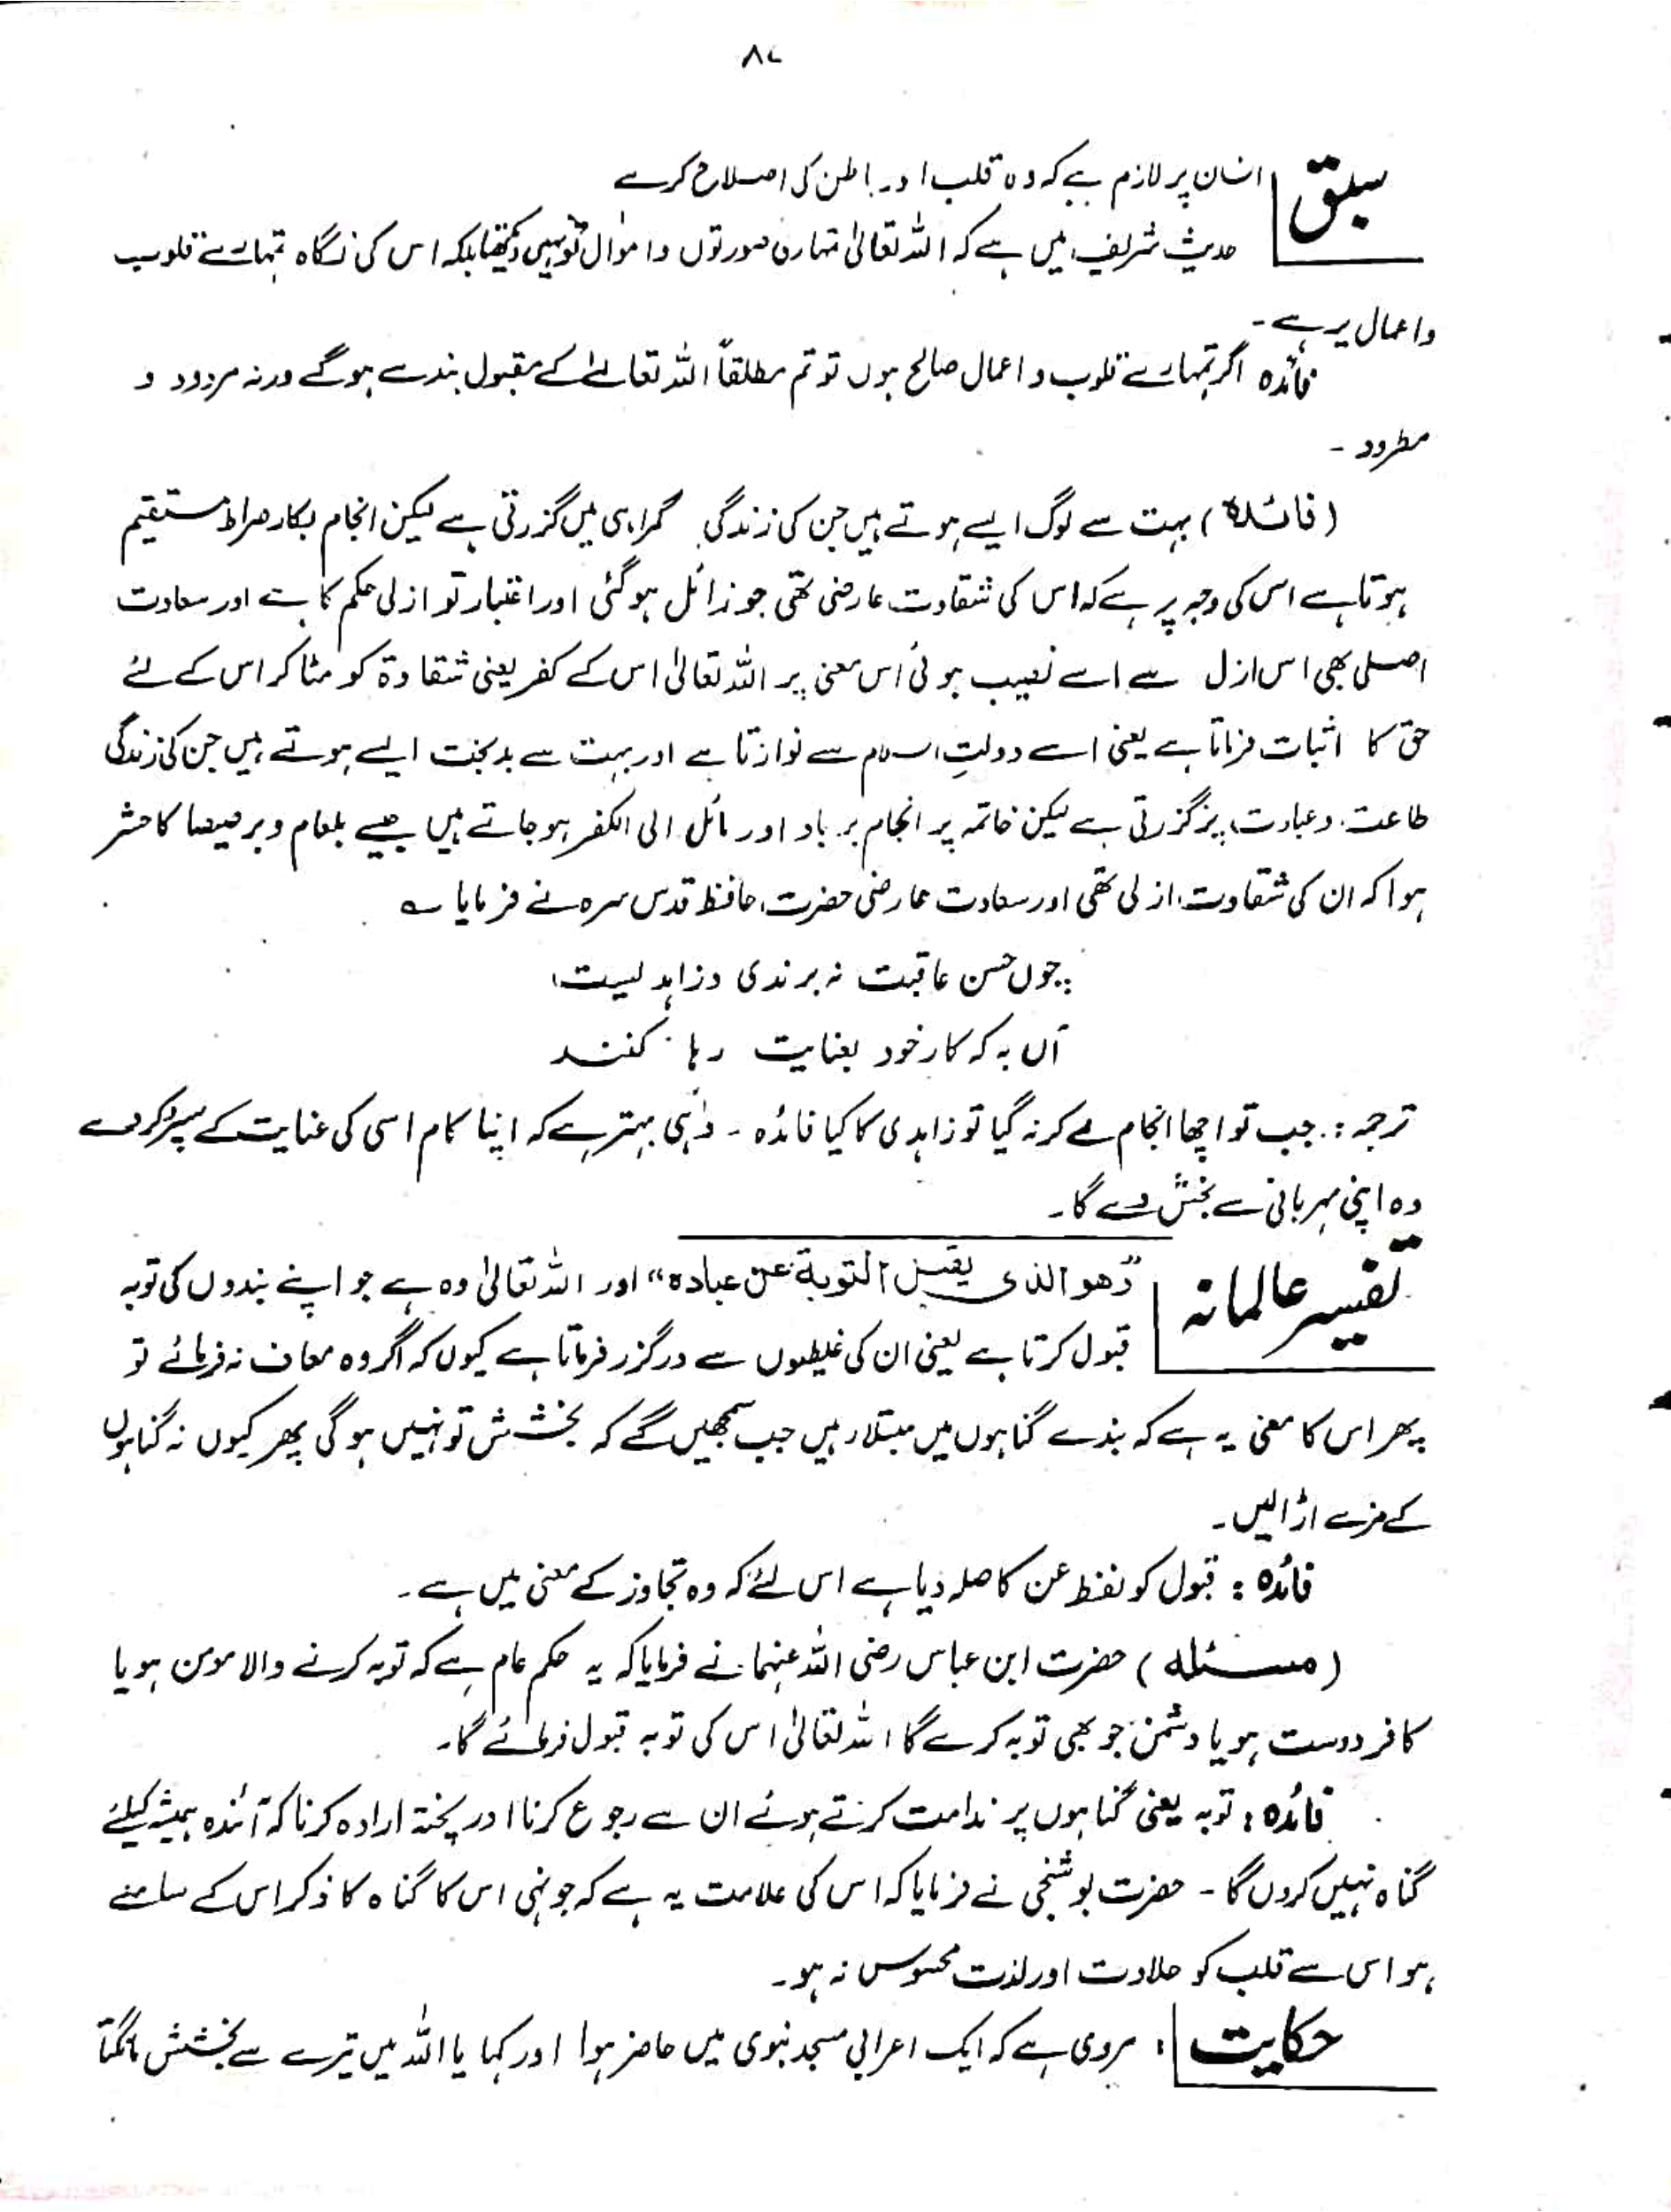 ۸۷
سبق
انسان پر لازم ہے کہ وہ قلب اور باطن کی اصلاح کرے
حدیث شریف میں ہے کہ اللہ تعالیٰ تمہاری صورتوں و اموال کو نہیں دیکھتا بلکہ اس کی نگاہ تمہارے قلوب
و اعمال پر ہے ۔
فائدہ اگر تمہارے قلوب و اعمال صالح ہوں تو تم مطلقاً اللہ تعالےٰ کے مقبول بندے ہوگے ورنہ مردود و
مطرود ۔
(فائدہ) بہت سے لوگ ایسے ہوتے ہیں جن کی زندگی گمراہی میں گزرتی ہے لیکن انجام بکار صراط مستقیم
ہوتا ہے اس کی وجہ یہ ہے کہ اس کی شقاوت عارضی تھی جو زائل ہو گئی اور اعتبار تو ازلی حکم کا ہے اور سعادت
اصلی بھی اس ازل سے اسے نصیب ہوئی اس معنی پر اللہ تعالیٰ اس کے کفر یعنی شقاوۃ کو مٹا کر اس کے لئے
حق کا اثبات فرماتا ہے یعنی اسے دولتِ اسلام سے نوازتا ہے اور بہت سے بدبخت ایسے ہوتے ہیں جن کی زندگی
طاعت و عبادت پر گزرتی ہے لیکن خاتمہ پر انجام برباد اور مائل الی الکفر ہو جاتے ہیں جیسے بلعام و برصیصا کا حشر
ہوا کہ ان کی شقاوت ازلی تھی اور سعادت عارضی حضرت حافظ قدس سرہ نے فرمایا ؎
چوں حسن عاقبت نہ برندی و زاہدیست
آں بہ کہ کار خود بعنایت رہا کنند
ترجمہ :. جب تو اچھا انجام لے کر نہ گیا تو زاہدی کا کیا فائدہ ۔ وہی بہتر ہے کہ اپنا کام اسی کی عنایت کے سپرد کر دے
وہ اپنی مہربانی سے بخش دے گا ۔
تفسیر عالمانہ
"وھو الذی یقبل التوبۃ عن عبادہ" اور اللہ تعالیٰ وہ ہے جو اپنے بندوں کی توبہ
قبول کرتا ہے یعنی ان کی غلیطوں سے درگزر فرماتا ہے کیوں کہ اگر وہ معاف نہ فرمائے تو
پھر اس کا معنی یہ ہے کہ بندے گناہوں میں مبتلا رہیں جب سمجھیں گے کہ بخشش تو نہیں ہو گی پھر کیوں نہ گناہوں
کے مزے اڑالیں ۔
فائدہ : قبول کو لفظ عن کا صلہ دیا ہے اس لئے کہ وہ تجاوز کے معنی میں ہے ۔
(مسئلہ) حضرت ابن عباس رضی اللہ عنہما نے فرمایا کہ یہ حکم عام ہے کہ توبہ کرنے والا مومن ہو یا
کافر دوست ہو یا دشمن جو بھی توبہ کرے گا اللہ تعالیٰ اس کی توبہ قبول فرمائے گا ۔
فائدہ : توبہ یعنی گناہوں پر ندامت کرتے ہوئے ان سے رجوع کرنا اور پختہ ارادہ کرنا کہ آئندہ ہمیشہ کیلئے
گناہ نہیں کروں گا ۔ حضرت بوشنجی نے فرمایا کہ اس کی علامت یہ ہے کہ جونہی اس کا گناہ کا ذکر اس کے سامنے
ہو اس سے قلب کو حلاوت اور لذت محسوس نہ ہو ۔
حکایت : مروی ہے کہ ایک اعرابی مسجد نبوی میں حاضر ہوا اور کہا یا اللہ میں تیرے سے بخشش مانگتا